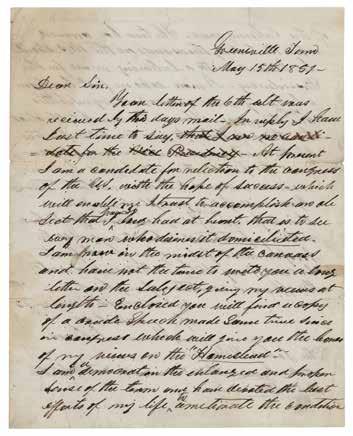 Greeneville Tenn
May 15th 1851-
Dear Sir,
Your letter of the 6th ult was
received by this days mail - In reply I have
Just time to say, that I am no candi-
date for the Vice Presidency - At present
I am a candidate for relection to the congress
of the U.S. with the hope of success - which
will enable me I trust to accomplish an ob
ject that I have long had at heart, that is to see
every man who desires it domiciliated.
I am now in the midst of the canvass
and have not the time to write you a long
letter on the subject, giving my views at
length - Enclosed you will find a copy
of a speech made some time since
in congress which will give you the
of my views on the "Homestead" -
I am a democrat in the enlarged and proper
sense of the term and have devoted the best
efforts of my life to ameliorate the condition